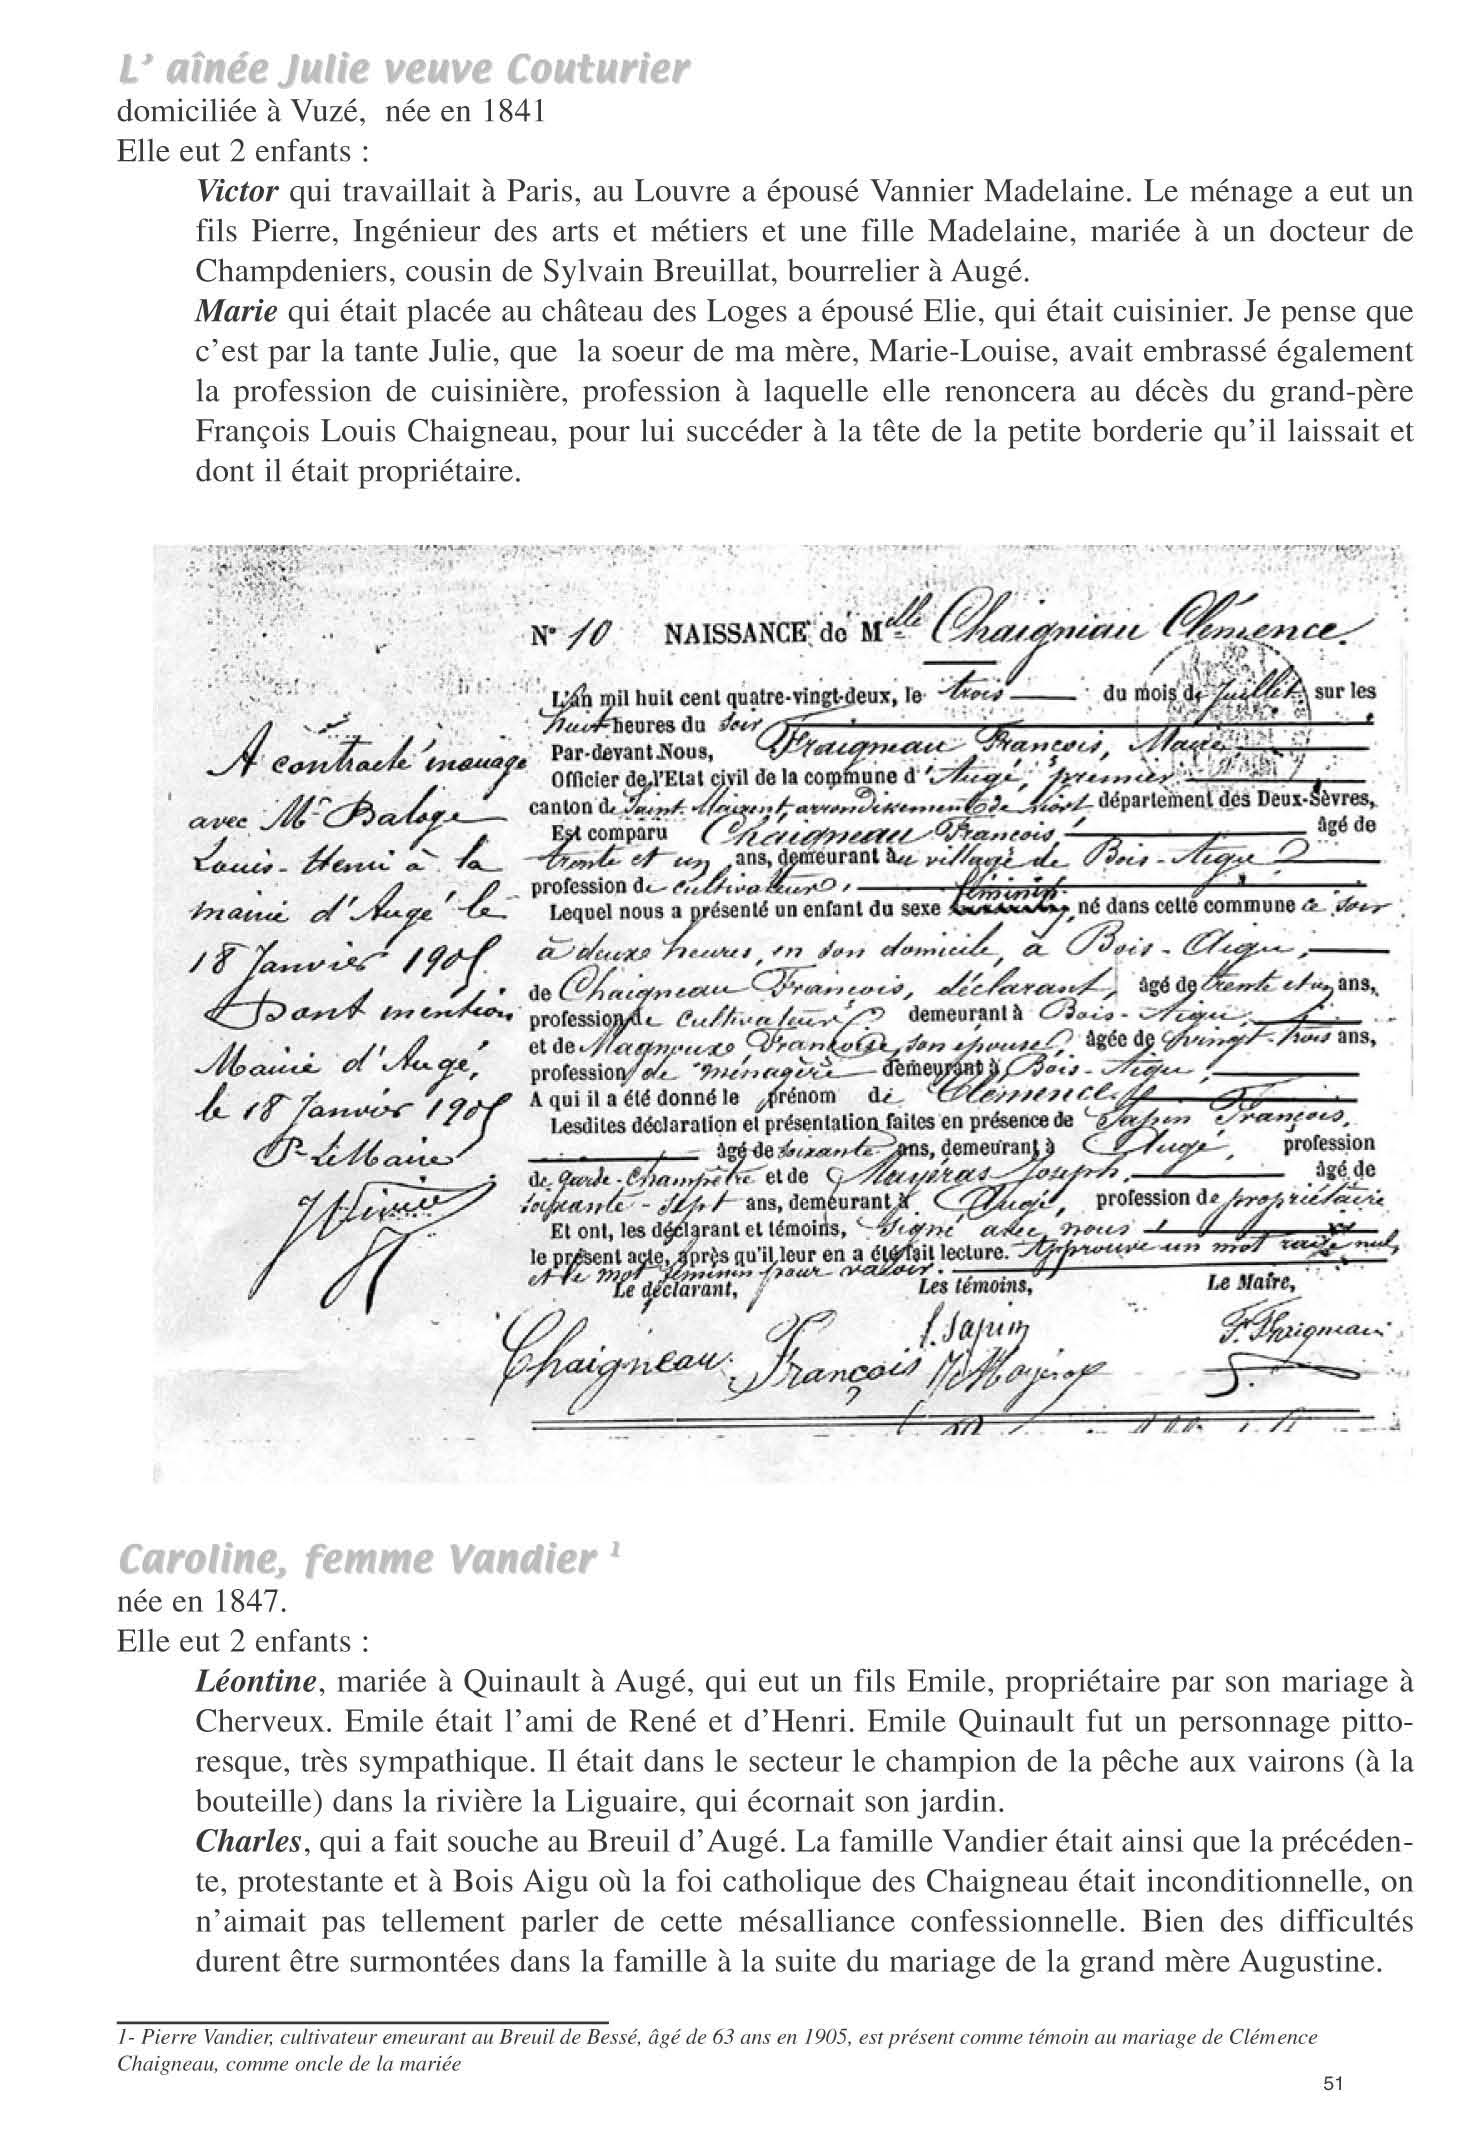 L' aînée Julie veuve Couturier
domiciliée à Vuzé, née en 1841
Elle eut 2 enfants :
Victor qui travaillait à Paris, au Louvre a épousé Vannier Madelaine. Le ménage a eut un
fils Pierre, Ingénieur des arts et métiers et une fille Madelaine, mariée à un docteur de
Champdeniers, cousin de Sylvain Breuillat, bourrelier à Augé.
Marie qui était placée au château des Loges a épousé Elie, qui était cuisinier. Je pense que
c'est par la tante Julie, que la soeur de ma mère, Marie-Louise, avait embrassé également
la profession de cuisinière, profession à laquelle elle renoncera au décès du grand-père
François Louis Chaigneau, pour lui succéder à la tête de la petite borderie qu'il laissait et
dont il était propriétaire.
N° 10 NAISSANCE de Melle Chaigniau Clémence
L'an mil huit cent quatre-vingt-deux, le trois du mois de Juillet sur les
huit heures du soir
Par-devant Nous, François, Maire,
Officier de l'Etat civil de la commune d'Augé, premier
canton de Saint-Maixent, arrondissement de Niort, département des Deux-Sèvres,
Est comparu Chaigneau François, âgé de
trente et un ans, demeurant au village de Bois-Aigu
profession de cultivateur,
Lequel nous a présenté un enfant du sexe féminin, né dans cette commune ce soir
à deux heures, en son domicile, à Bois-Aigu,
de Chaigneau François, déclarant, âgé de trente et un ans,
profession de cultivateur demeurant à Bois-Aigu,
et de Magnoux Françoise, son épouse, âgée de vingt-trois ans,
profession de ménagère demeurant à Bois-Aigu,
A qui il a été donné le prénom de Clémence
Lesdites déclaration et présentation faites en présence de Sapin François,
âgé de soixante ans, demeurant à Augé, profession
de garde-champêtre et de Joseph, âgé de
soixante-sept ans, demeurant à Augé, profession de propriétaire
Et ont, les déclarant et témoins, signé avec nous
le présent acte, après qu'il leur en a été fait lecture. Approuvé un mot rayé nul,
et le mot féminin pour valoir.
Le déclarant, Les témoins, Le Maire,
Chaigneau François f. Sapin
A contracté mariage
avec Mr Baloge
Louis-Henri à la
mairie d'Augé le
18 Janvier 1905
Dont mention
Mairie d'Augé,
le 18 Janvier 1905
Pr Le Maire
Caroline, femme Vandier 1
née en 1847.
Elle eut 2 enfants :
Léontine, mariée à Quinault à Augé, qui eut un fils Emile, propriétaire par son mariage à
Cherveux. Emile était l'ami de René et d'Henri. Emile Quinault fut un personnage pitto-
resque, très sympathique. Il était dans le secteur le champion de la pêche aux vairons (à la
bouteille) dans la rivière la Liguaire, qui écornait son jardin.
Charles, qui a fait souche au Breuil d'Augé. La famille Vandier était ainsi que la précéden-
te, protestante et à Bois Aigu où la foi catholique des Chaigneau était inconditionnelle, on
n'aimait pas tellement parler de cette mésalliance confessionnelle. Bien des difficultés
durent être surmontées dans la famille à la suite du mariage de la grand mère Augustine.
1- Pierre Vandier, cultivateur emeurant au Breuil de Bessé, âgé de 63 ans en 1905, est présent comme témoin au mariage de Clémence
Chaigneau, comme oncle de la mariée
51